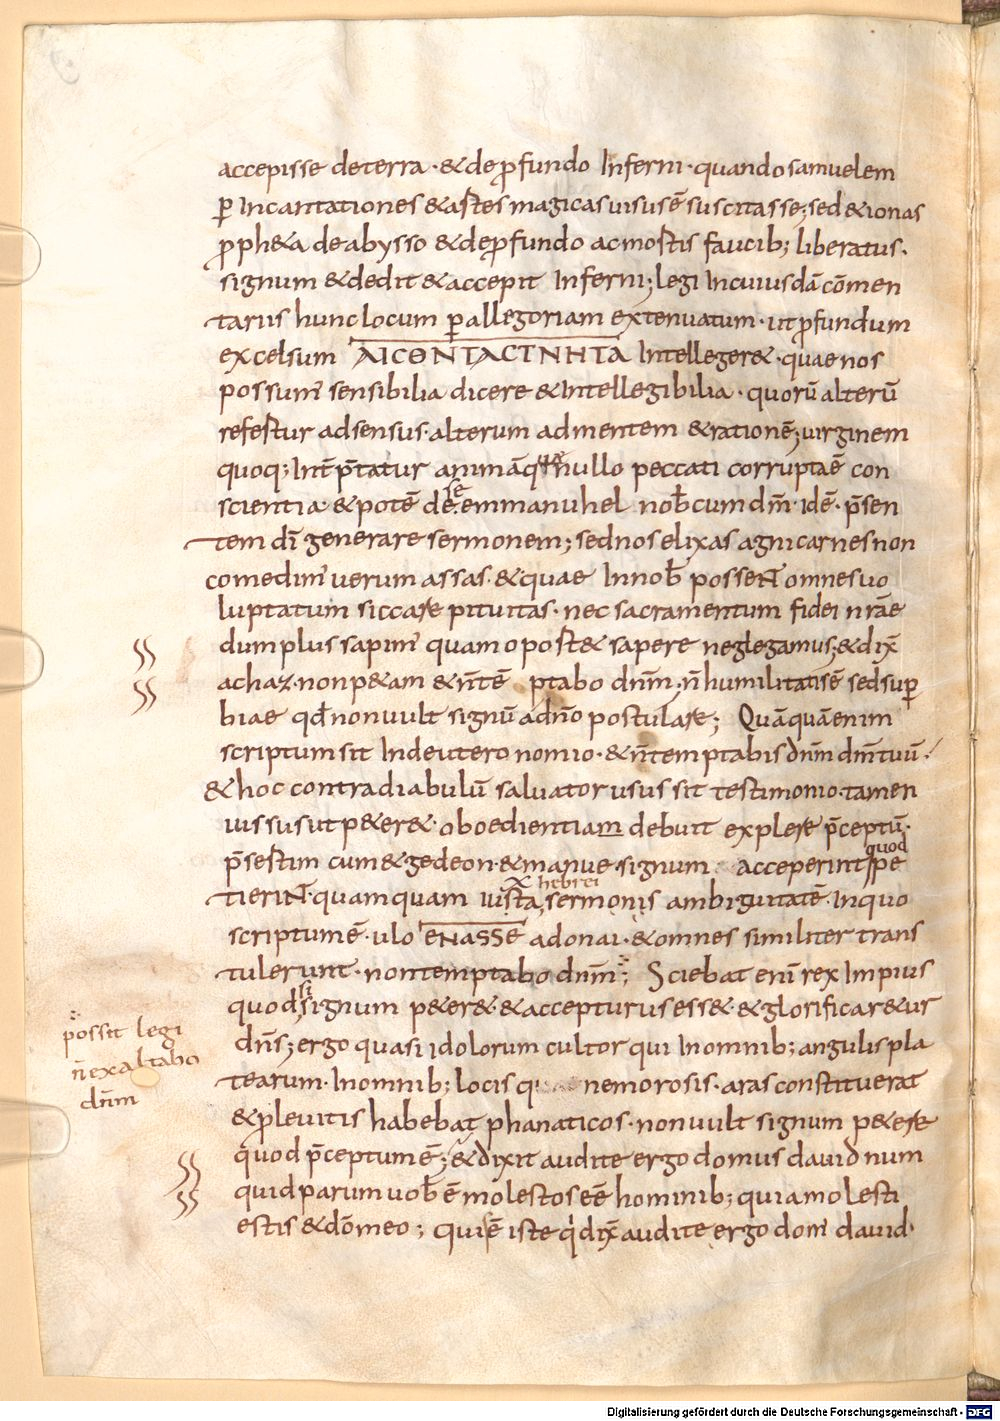 accepisse deterra · & dep̱fundo Inferni · quando samuelem
p̱ Incantationes & artes magicas uisusē suscitasse; sed & ionas
p̱ph&a de abysso & dep̱fundo ac mortis faucib; liberatus ·
signum & dedit & accepit Inferni; legi In cuiusdā cōmen
tariis hunc locum p̱ allegoriam extenuatum · ut p̱fundum
excelsum ΑΙϹΘΝΤΑϹΤΝΗΤΑ Intelleger& · quae nos
possumꝰ sensibilia dicere & Intellegibilia · quorū alterū
refertur ad sensus · alterum ad mentem & rationē; virginem
quoq; Int̄p̄tatur animā quae nullo peccati corrupta ē con
scientia · & potē de se emmanuhel nob̄cum dm̄ · idē · p̄sen
tem dī generare sermonem; sed nos elixas agni carnes non
comedimꝰ uerum assas · & quae In nob̄ possent omnes uo
luptatum siccare pituitas · nec sacramentum fidei n̄rāe
dum plus sapimꝰ quam oport& sapere neglegamus; & dix̄
achaz · non p&am & n̄ tē ptabo dnm̄; n̄ humilitatis ē sed sup̱
biae qd̄ non uult signū a dn̄o postulare; Quāquā enim
scriptum sit In deutero nomio · & n̄ temptabis dnm̄ dm̄ tuū ·
& hoc contra diabulū saluator usus sit testimonio · tamen
iussus ut p&er& · oboedientiam debuit explere p̄ceptū ·
p̄sertim cum & gedeon · & manue signum acceperint quod pe
tierint · quamquam iuxta hebrei sermonis ambiguitatē · In quo
scriptum ē · ulo ENASSE adonai · & omnes similiter trans
tulerunt · non temptabo dnm̄; Sciebat enī rex Impius
quod si signum p&er& · & accepturus ess& · & glorificar&ur
dn̄s; ergo quasi idolorum cultor qui In omnib; angulis pla
tearum · In omnib; locis nemorosis · aras constituerat
& p̱ leuitis habebat phanaticos · non uult signum p&ere
quod p̄ceptum ē; & dixit audite ergo domus dauid num
quid parum uob̄ ē molestos eē hominib; quia molesti
estis & dō meo; quis ē iste q̇ dix̄ audite ergo domꝰ dauid ·
possit legi
n̄ exaltabo
dnm̄